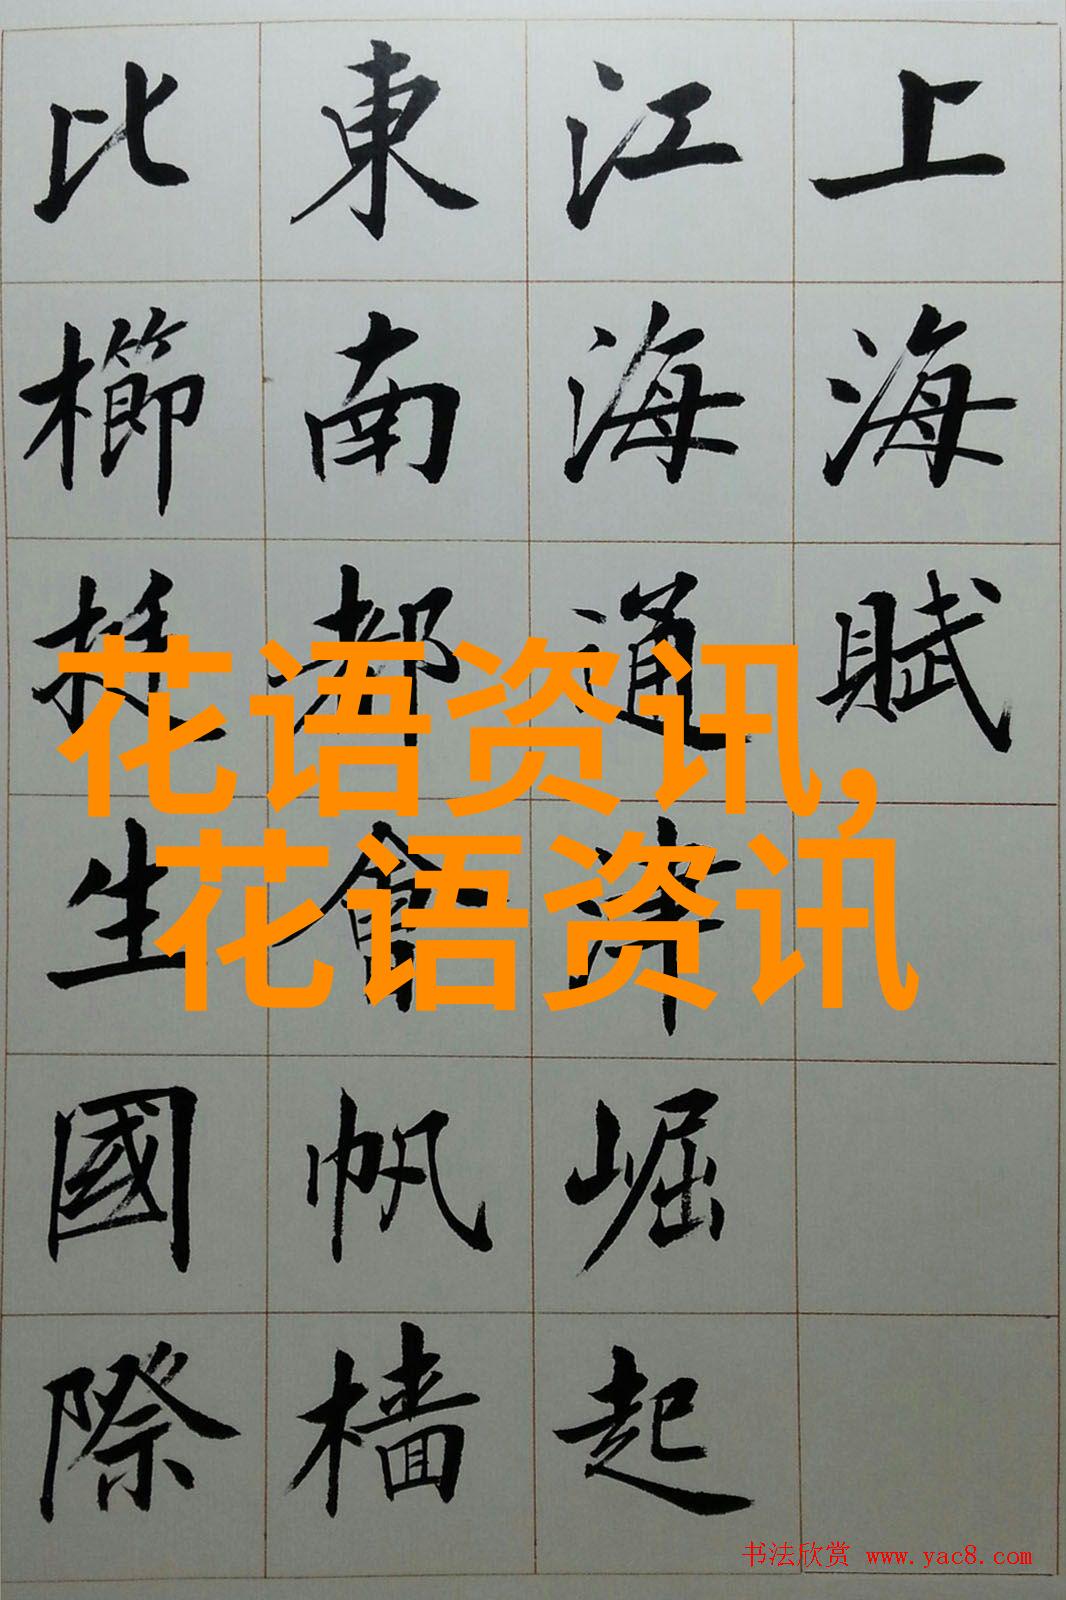 上海賦
江海通津崛起
東南都會帆樯
比櫛挺生國際
花语资讯,
花语资讯
书法欣赏 www.yac8.com